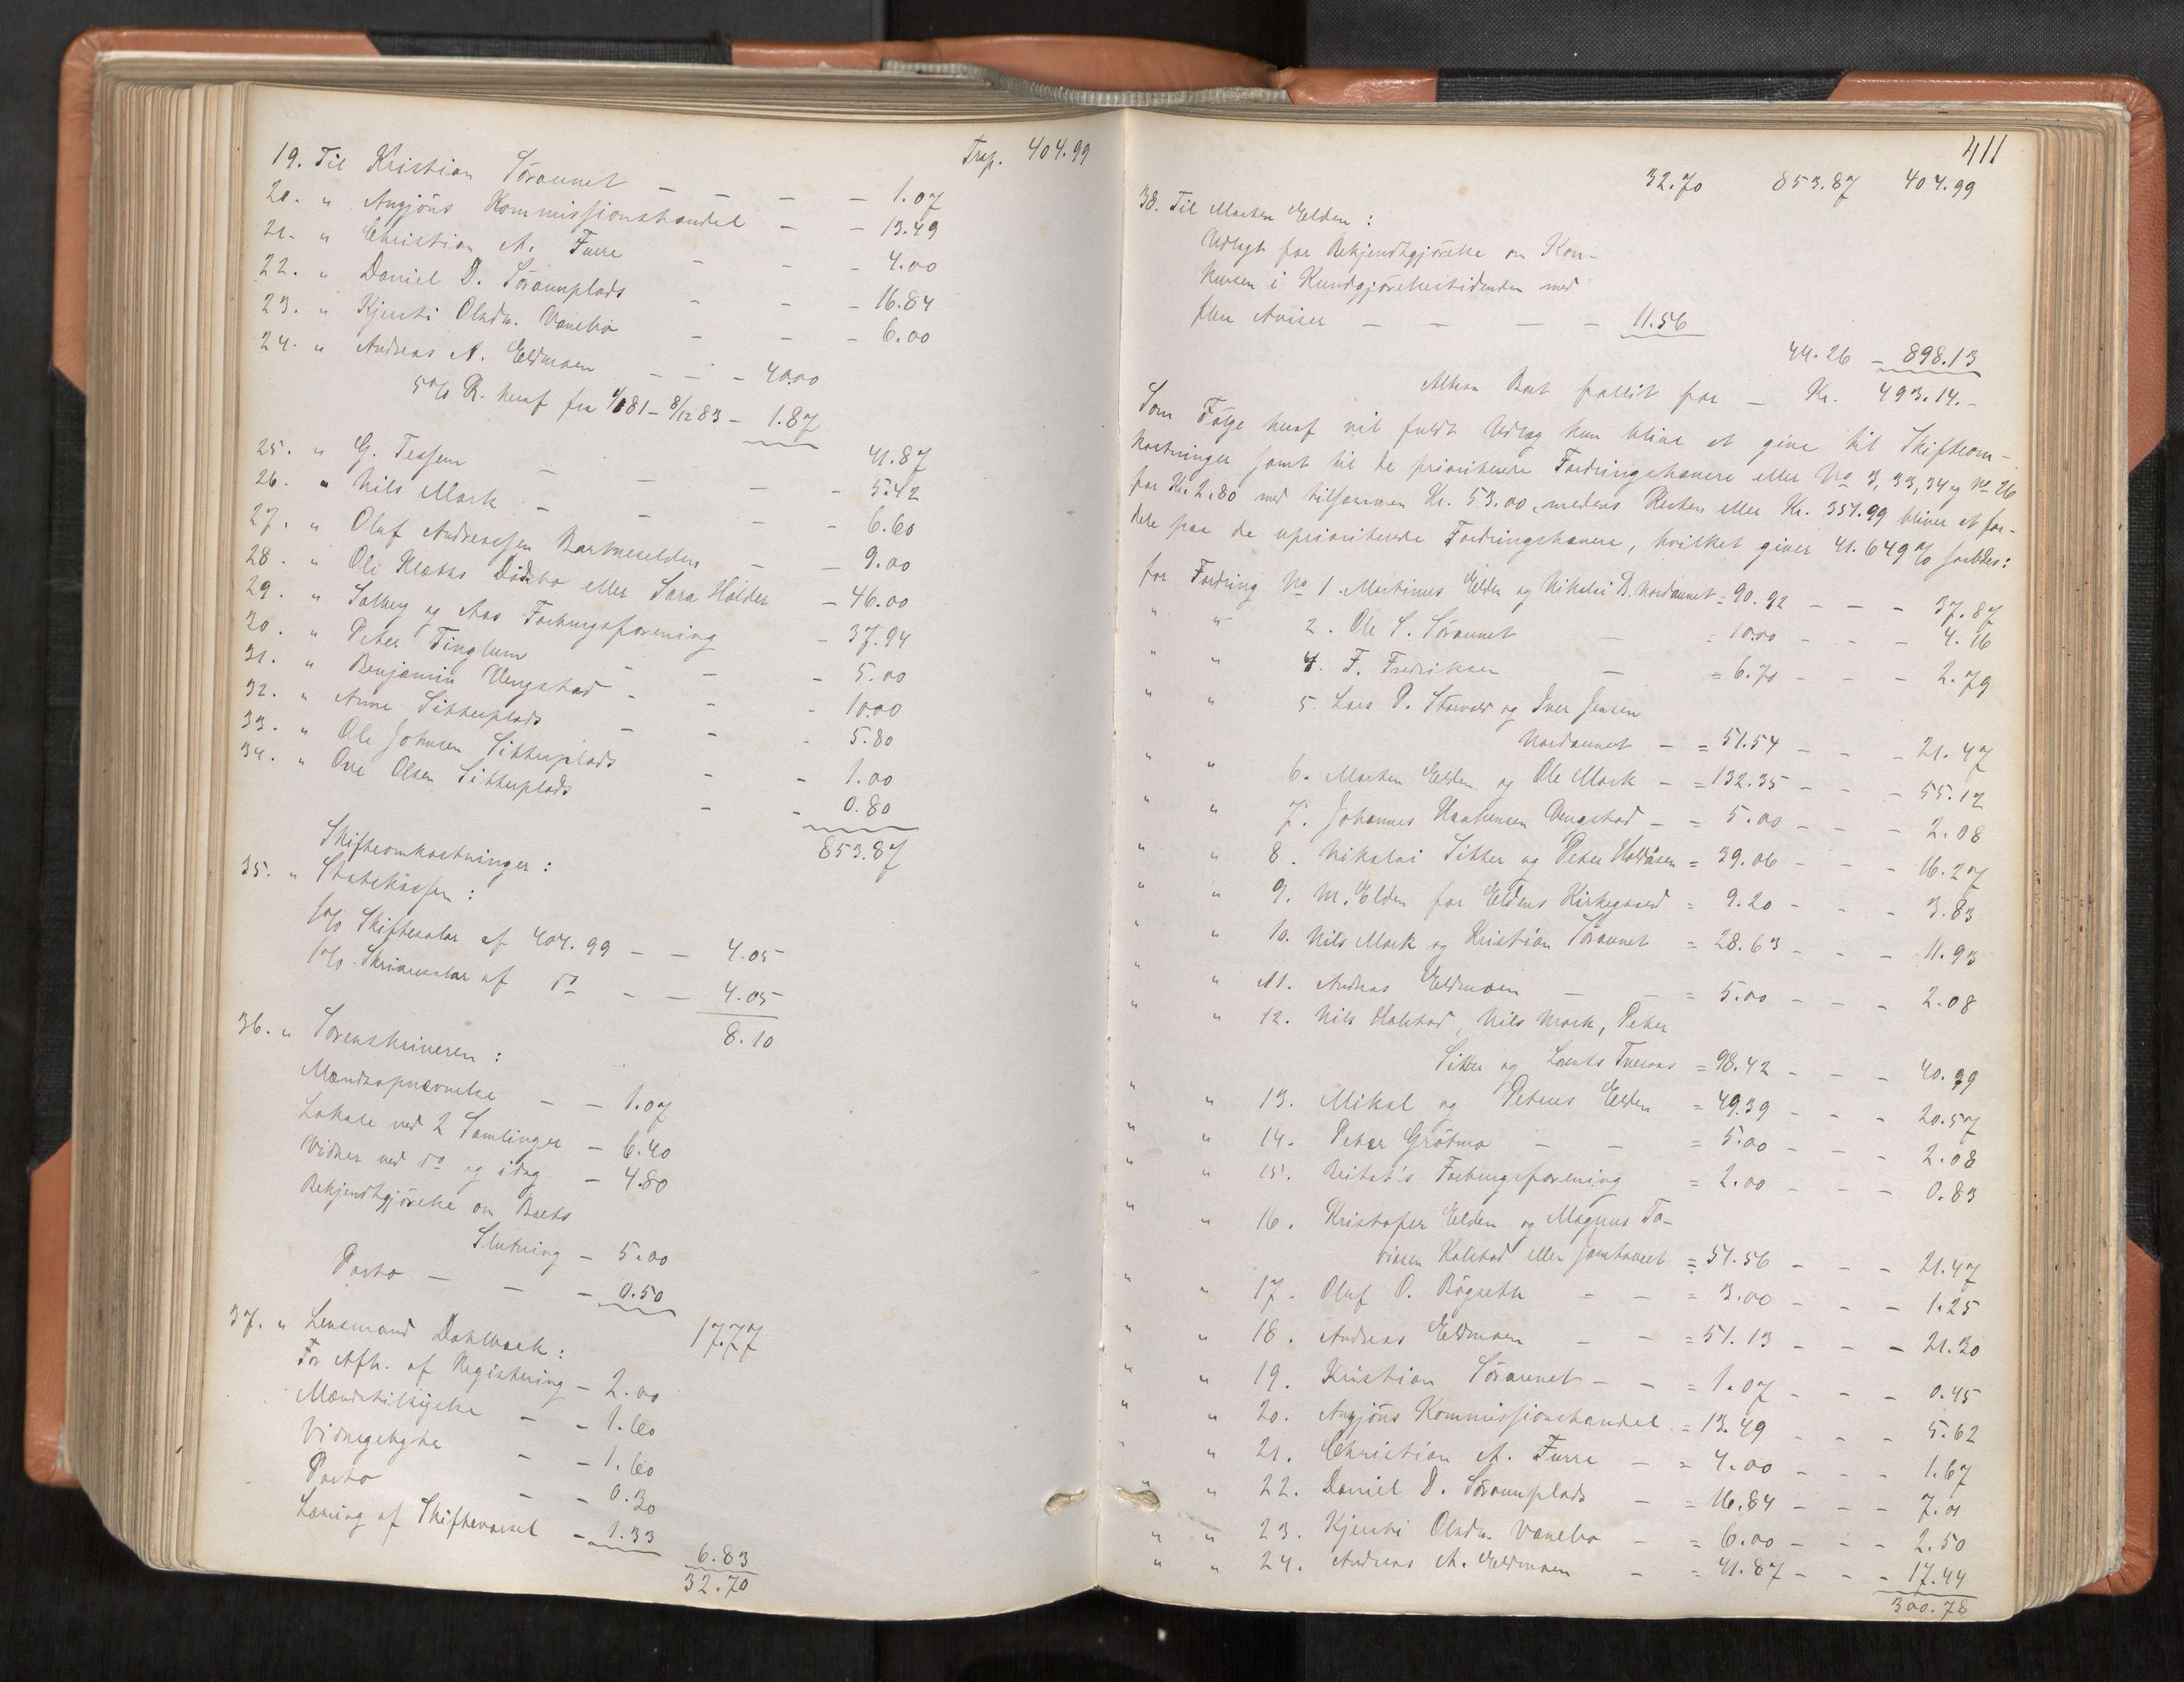 Trsp. 404.99
19. Til Kristian Söraunet - - - - 1.07
20. " Angjöns Kommissionshandel - - 13.49
21. " Christian A. Furre - - - 4.00
22. " Daniel D. Söraunplads - - - 16.84
23. " Kjersti Olsdr. Vanebo - - - 6.00
24. " Andreas A. Eldmoen - - - 40.00
5 % R. heraf fra 81 - 8/12 83 - 1.87
41.87
25. " G. Tessem - - - - 5.42
26. " Nils Mork - - - - 6.60
27. " Oluf Andreassen Bartneselden - - 9.00
28. " Ole Klæbus Dödebo eller Sara Holder - 46.00
29. " Salberg og Aas Forbrugsforening - 37.94
30. " Peter Tinglum - - - 5.00
31. " Benjamin Vengstad - - - 10.00
32. " Anne Sitterplads - - - 5.80
33. " Ole Johnsen Sitterplads - - 1.00
34. " Ove Olsen Sitterplads - - 0.80
853.87
Skifteomkostninger :
35. " Statskassen :
1 % Skiftesalar af 404.99 - - 4.05
1 % Skriversalar af do - - 4.05
8.10
36. " Sorenskriveren :
Mændsopnævnelse - - 1.07
Lokale ved 2 Samlinger - 6.40
Vidner ved do og idag - 4.80
Bekjendtgjörelse om Boets
Slutning - 5.00
Porto - - - 0.50
17.77
37. " Lensmand Dahlback :
For Afh. af Registrering - 2.00
Mændstilsigelse - - 1.60
Vidnegebyhr - - 1.60
Porto - - 0.30
Læsning af Skiftevarsel - 1.33
6.83
32.70
411
32.70 853.87 404.99
38. Til Morten Elden :
Udlagt for Bekjendtgjörelse om Kon-
kursen i Kundgjörelsestidenden med
flere Aviser - - - - 11.56
44.26 - 898.13
Altsaa Boet fallit for - Kr. 493.14.-
Som Fölge heraf vil fuldt Udlæg kun blive at give til Skifteom-
kostninger samt til de prioriterede Fordringshavere eller No 3, 33, 34 og No 26
for Kr. 2.80 med tilsammen Kr. 53.00, medens Resten eller Kr. 351.99 bliver at for-
dele paa de uprioriterede Fordringshavere, hvilket giver 41.649 % saaledes:
for Fordring No 1. Martinus Elden og Nikolai B. Nordaunet = 90.92 - - - 37.87
" " 2. Ole S. Söraunet - = 10.00 - - - 4.16
" " 4. F. Fredriksen - = 6.70 - - - 2.79
" " 5. Lars P. Storvold og Iver Jensen
Nordaunet - = 51.54 - - - 21.47
" " 6. Morten Elden og Ole Mork - = 132.35 - - - 55.12
" " 7. Johannes Haakensen Vengstad - = 5.00 - - - 2.08
" " 8. Nikolai Sitter og Peter Holdåsen = 39.06 - - - 16.27
" " 9. M. Elden for Eldens Kirkegaard = 9.20 - - - 3.83
" " 10. Nils Mork og Kristian Söraunet = 28.63 - - - 11.93
" " 11. Andreas Eldmoen - - = 5.00 - - - 2.08
" " 12. Nils Holstad, Nils Mork, Peter
Sitter og Lorents Tveraas = 98.42 - - - 40.99
" " 13. Mikal og Petrus Elden = 49.39 - - - 20.57
" " 14. Peter Grötmo - - = 5.00 - - - 2.08
" " 15. Beitst's Forbrugsforening = 2.00 - - - 0.83
" " 16. Kristofer Elden og Magnus To-
viasen Kolstad eller Samboeret = 51.56 - - - 21.47
" " 17. Oluf O. Bögseth - - = 3.00 - - - 1.25
" " 18. Andreas Eldmoen - - = 51.13 - - - 21.30
" " 19. Kristian Söraunet - - = 1.07 - - - 0.45
" " 20. Angjöns Kommissionshandel = 13.49 - - - 5.62
" " 21. Christian A. Furre - = 4.00 - - - 1.67
" " 22. Daniel D. Söraunplads - = 16.84 - - - 7.01
" " 23. Kjersti Olsdr. Vanebo - = 6.00 - - - 2.50
" " 24. Andreas A. Eldmoen - = 41.87 - - - 17.44
300.78